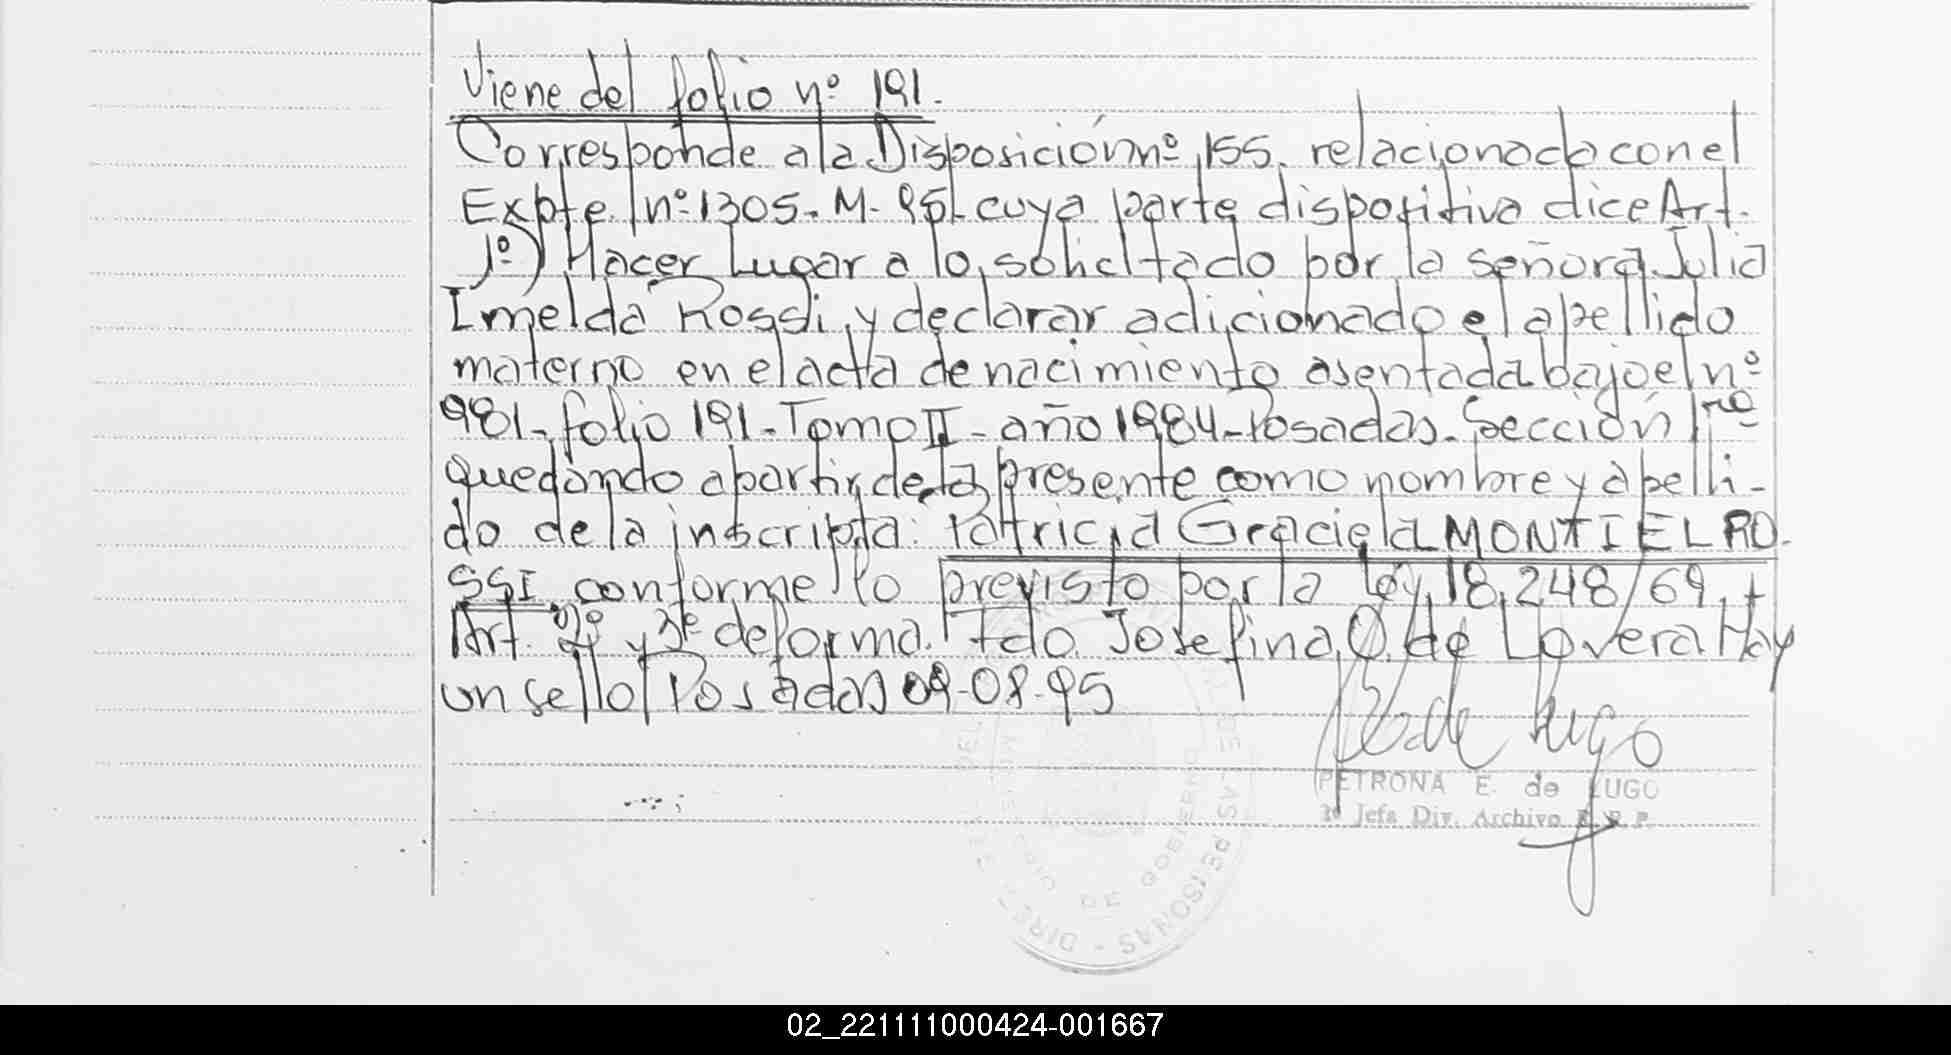 Viene del folio nº 191.
Corresponde a la Disposición nº 155. relacionada con el
Expte. nº 1305. M- 95- cuya parte dispositiva dice Art.
1º) Hacer Lugar a lo solicitado por la señora Julia
Imelda Rossi, y declarar adicionado el apellido
materno en el acta de nacimiento asentada bajo el nº
981- folio 191- Tomo II- año 1984- Posadas. Sección 1ra
quedando a partir de la presente como nombre y apelli-
do de la inscripta: Patricia Graciela MONTIEL RO-
SSI, conforme lo previsto por la Ley 18.248/69.+
Art. 2º y 3º de forma. Fdo. Josefina O. de Lovera Hay
un sello Posadas 09-08-95
de Lugo
PETRONA E. de LUGO
Jefa Div. Archivo R. P.
DE GOBIERNO
DE PERSONAS
02_221111000424-001667